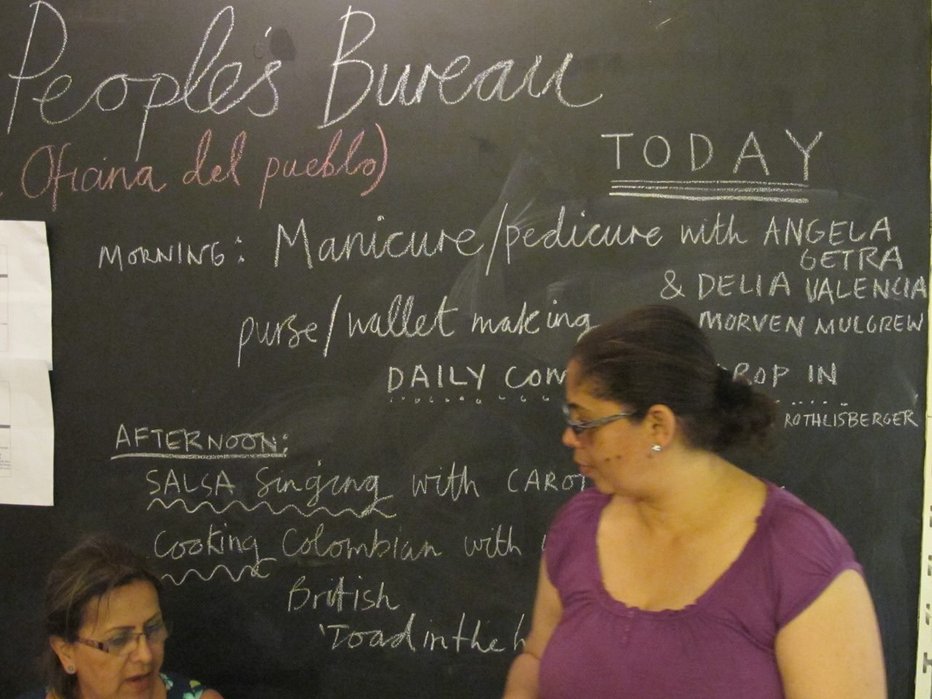 People's Bureau
Oficina del pueblo)
TODAY
MORNING: Manicure/pedicure with ANGELA
GETRA
& DELIA VALENCIA
purse/wallet making MORVEN MULGREW
DAILY COM ROP IN
ROTHLISBERGER
AFTERNOON:
SALSA Singing with CARO
Cooking Colombian with
British
'Toad in the h